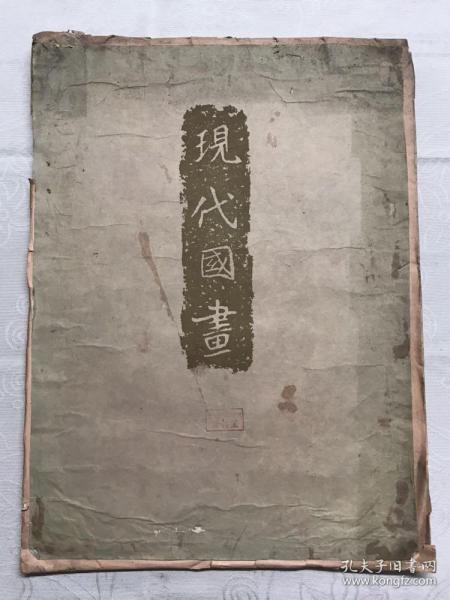 現代國畫
孔夫子旧书网
www.kongfz.com